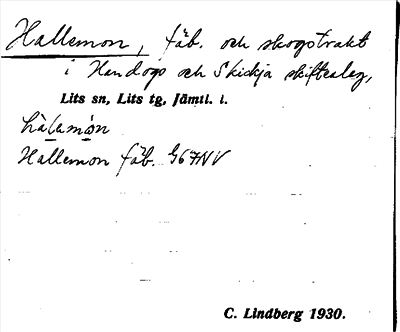 Hallemon, fäb. och skogstrakt
i Handogs och Skickja skifteslag,
Lits sn, Lits tg, Jämtl. l.
hàlamòn
Hallemon fäb. G67NV
C. Lindberg 1930.